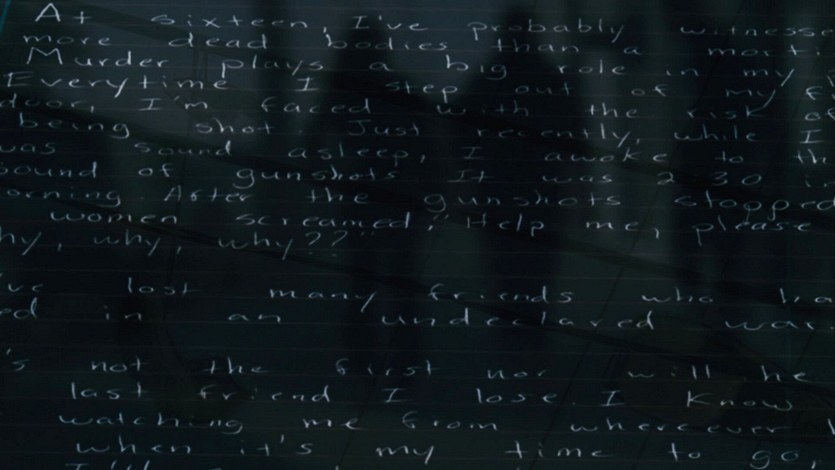 At sixteen, I've probably witnesse
more dead bodies than a morti
Murder plays a big role in my
Everytime I step out of my f
door, I'm faced with the risk o
being shot. Just recently, while I
was sound asleep, I awoke to th
sound of gunshots. It was 2:30 in
orning. After the gunshots stopped
women screamed, "Help me, please
hy, why, why??"
've lost many friends who ha
ed in an undeclared war
's not the first nor will he
last friend I lose. I know
watching me from wherever
when it's my time to go,